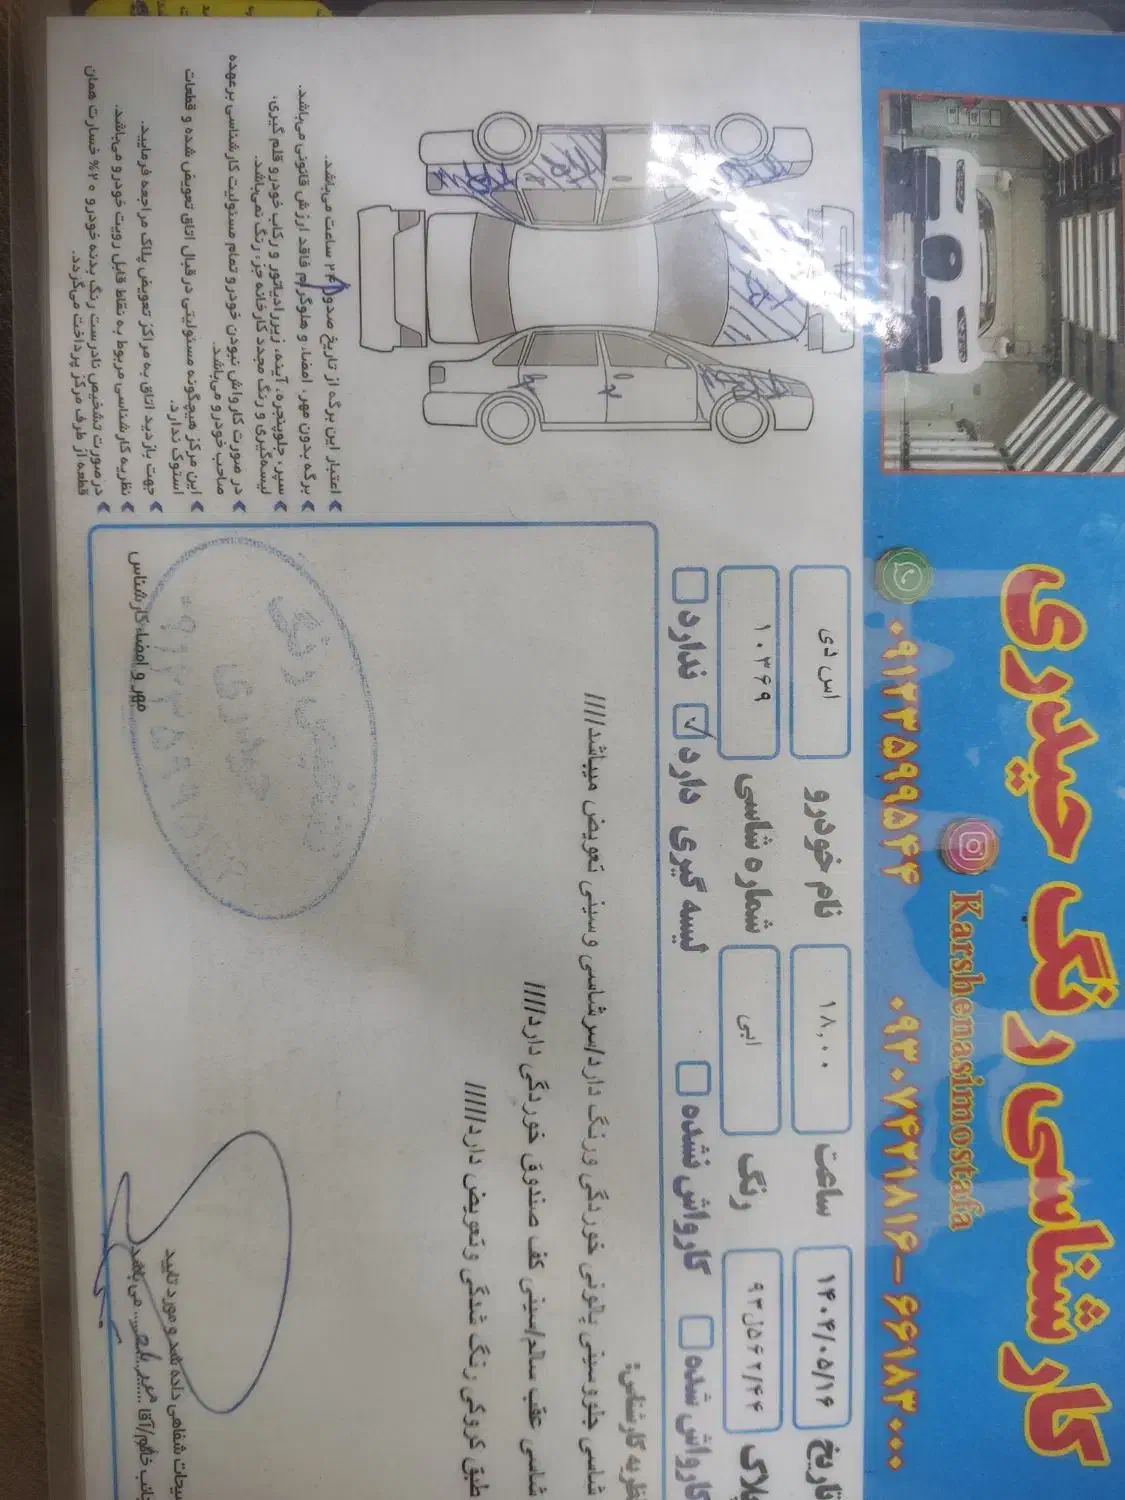 کارشناسی رنگ حیدری
Karshenasimostafa
۰۹۱۲۳۵۹۹۵۴۴
۰۹۳۰۷۴۲۱۸۱۶-۶۶۱۸۳۰۰۰
تاریخ ۱۴۰۴/۰۵/۱۶ ساعت ۱۸,۰۰ نام خودرو اس دی
پلاک ۹۳ل۵۶۲/۴۴ رنگ ابی شماره شاسی ۱۰۳۶۹
کارواش شده کارواش نشده لیسه گیری دارد ✓ ندارد
نظریه کارشناس:
شاسی جلو و سینی پالونی خوردگی و رنگ دارد/سرشاسی و سینی تعویض میباشد////
شاسی عقب سالم/سینی کف صندوق خوردگی دارد////
طبق کروکی رنگ شدگی و تعویض دارد/////
مهر و امضاء کارشناس
توضیحات شفاهی داده شد و مورد تایید
جانب خانم/آقا ........ می باشد
اعتبار این برگه از تاریخ صدور ۲۴ ساعت می‌باشد.
برگه بدون مهر، امضاء و هلوگرام فاقد ارزش قانونی می‌باشد.
سپر، جلوپنجره، آینه، زیر رادیاتور و رکاب خودرو قلم گیری،
لیسه‌گیری و رنگ مجدد کارخانه جزء رنگ نمی‌باشد.
در صورت کارواش نبودن خودرو تمام مسئولیت کارشناسی برعهده
صاحب خودرو می‌باشد.
این مرکز هیچگونه مسئولیتی در قبال اتاق تعویض شده و قطعات
استوک ندارد.
جهت بازدید اتاق به مراکز تعویض پلاک مراجعه فرمایید.
نظریه کارشناسی مربوط به نقاط قابل رویت خودرو می‌باشد.
در صورت تشخیص نادرست رنگ بدنه خودرو ۲۰% خسارت همان
قطعه از طرف مرکز پرداخت می‌گردد.